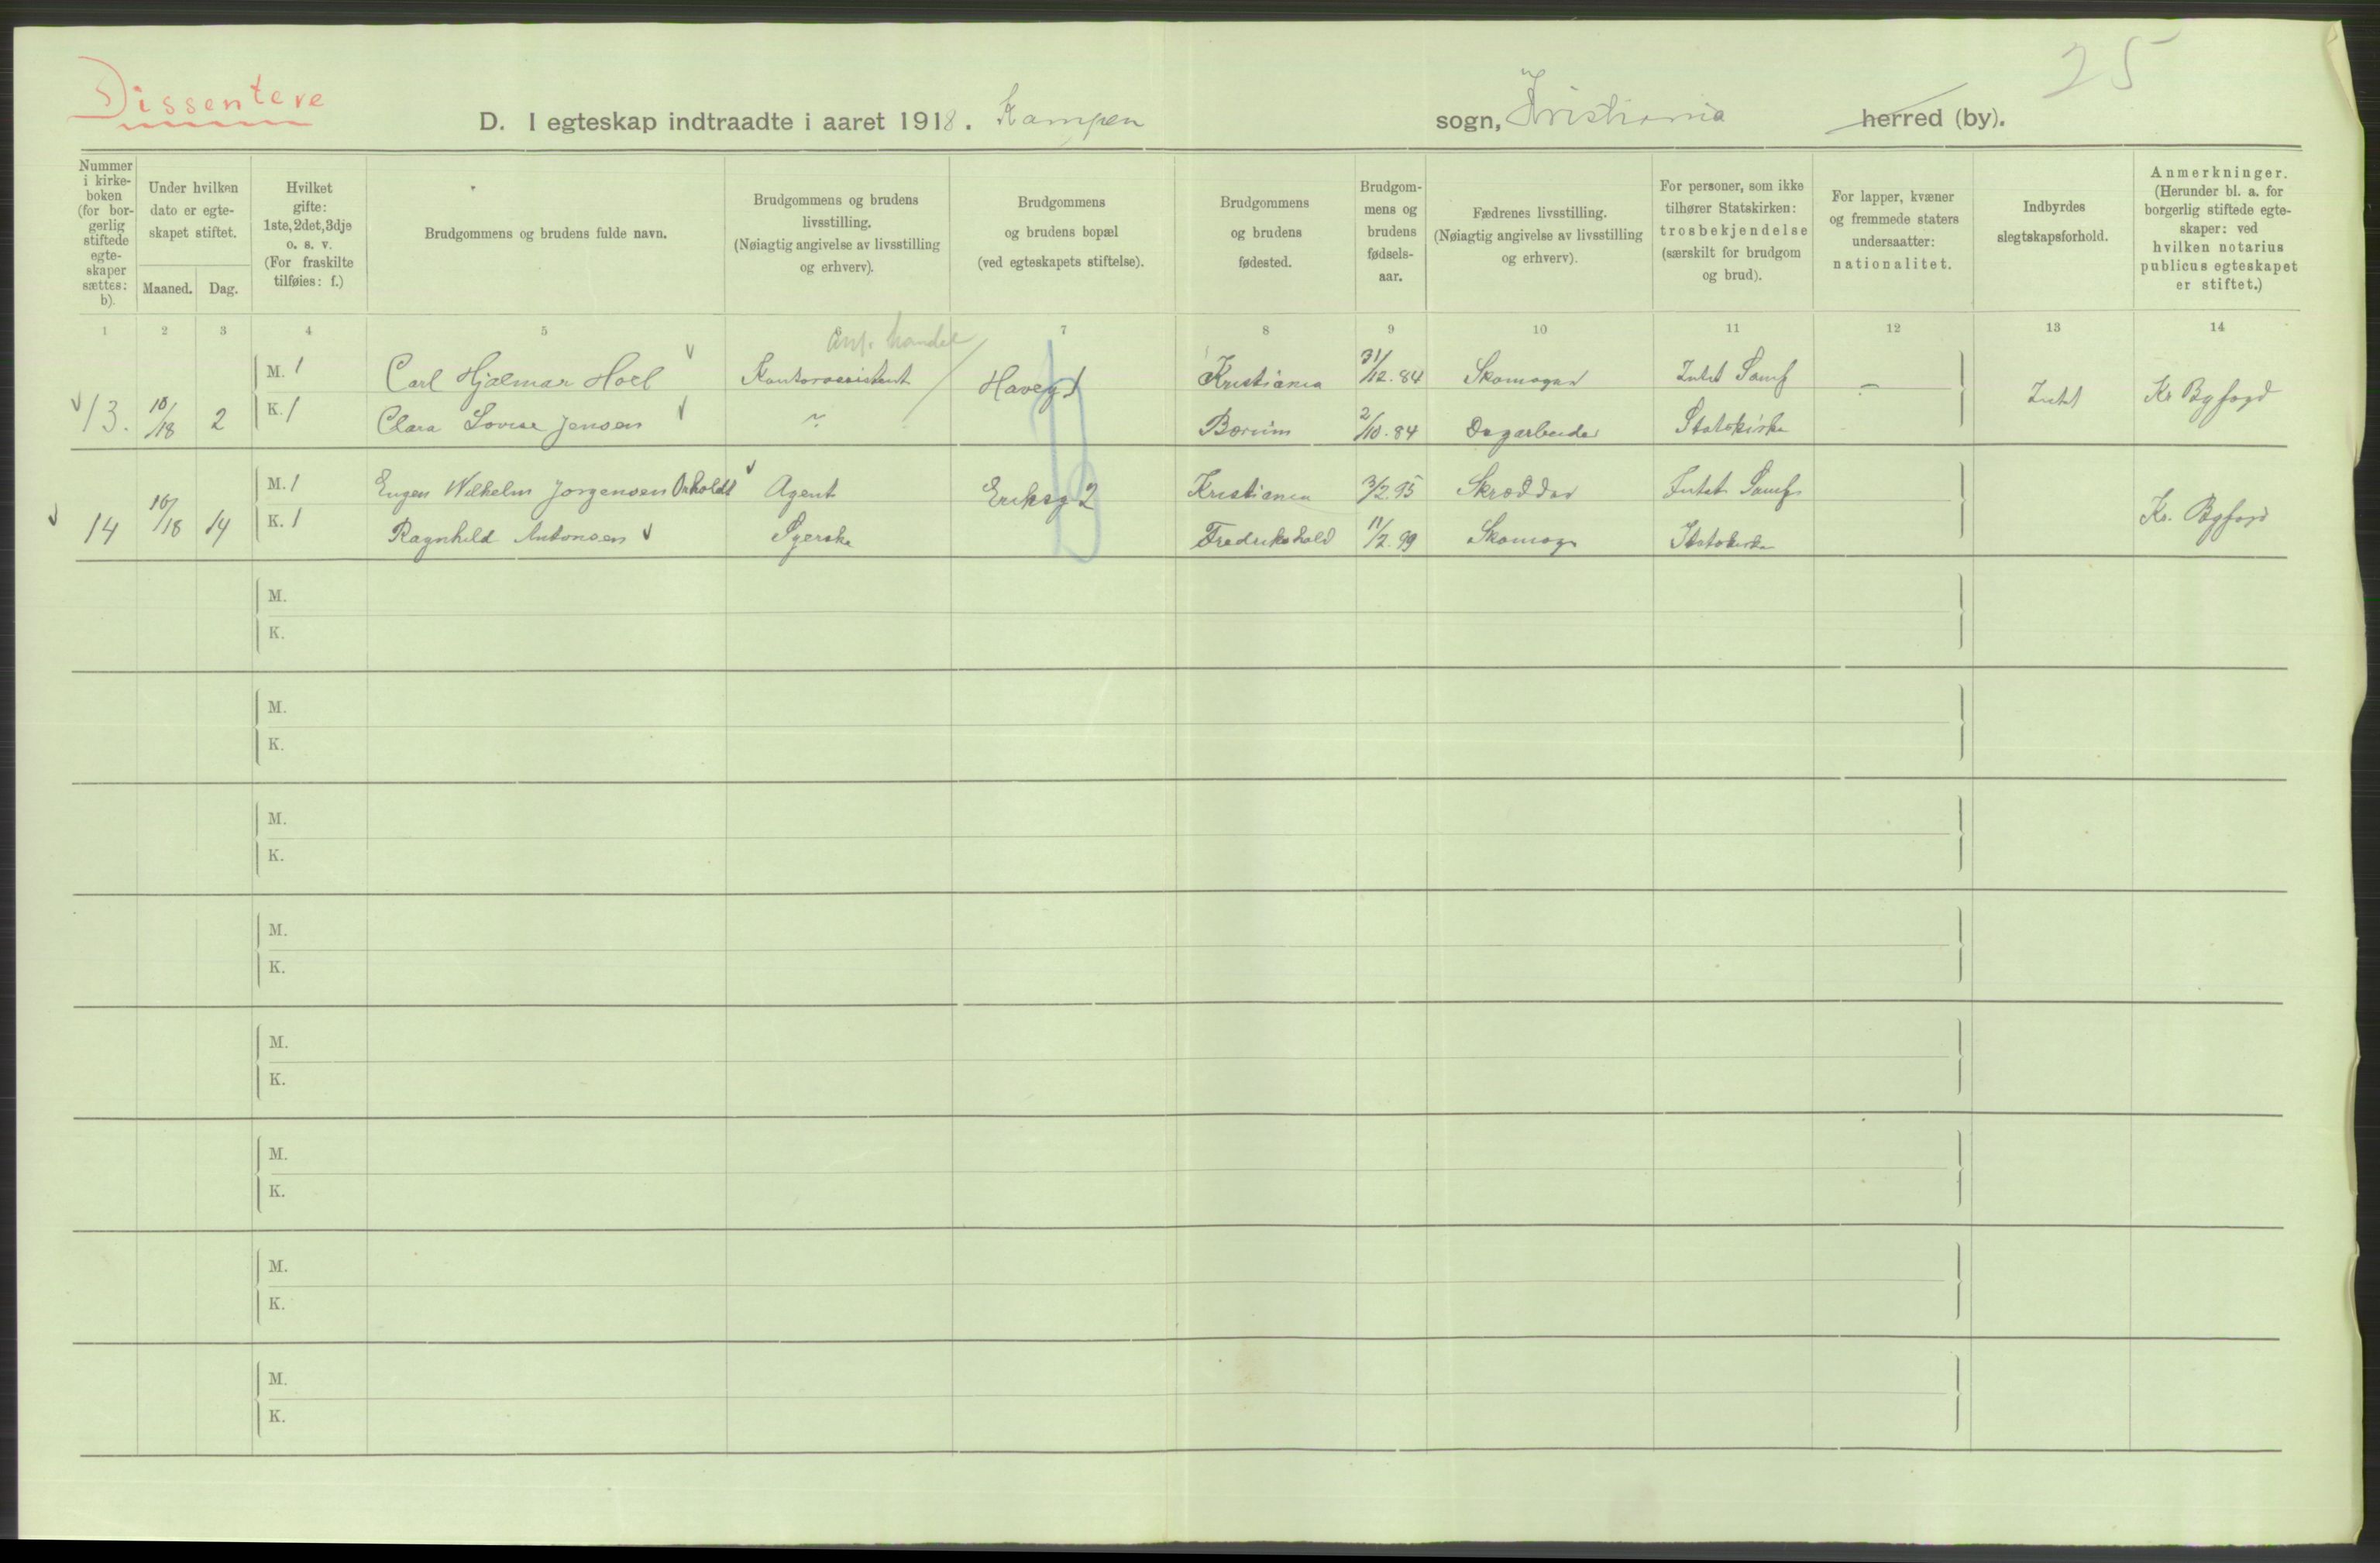 Dissentere
25
D. I egteskap indtraadte i aaret 1918. Kampen sogn, Kristiania herred (by).
Nummer i kirke- boken (for bor- gerlig stiftede egte- skaper sættes: b).
Under hvilken dato er egte- skapet stiftet.
Maaned. Dag.
Hvilket gifte: 1ste, 2det, 3dje o. s. v. (For fraskilte tilføies: f.)
Brudgommens og brudens fulde navn.
Brudgommens og brudens livsstilling. (Nøiagtig angivelse av livsstilling og erhverv).
Brudgommens og brudens bopæl (ved egteskapets stiftelse).
Brudgommens og brudens fødested.
Brudgom- mens og brudens fødsels- aar.
Fædrenes livsstilling. (Nøiagtig angivelse av livsstilling og erhverv).
For personer, som ikke tilhører Statskirken: trosbekjendelse (særskilt for brudgom og brud).
For lapper, kvæner og fremmede staters undersaatter: nationalitet.
Indbyrdes slegtskapsforhold.
Anmerkninger. (Herunder bl. a. for borgerlig stiftede egte- skaper: ved hvilken notarius publicus egteskapet er stiftet.)
1 2 3 4 5 6 7 8 9 10 11 12 13 14
handel
M. 1 Carl Hjalmar Hoel Kontorassistent Haveg 1 Kristiania 31/12.84 Skomager Intet Samf — Intet Kr Byfogd
13. 10/18 2 K. 1 Clara Lovise Jensen Bærum 2/10.84 Dagarbeider Statskirke
M. 1 Eugen Wilhelm Jorgensen Orholdt Agent Eriksg 2 Kristiania 3/2.95 Skrædder Intet Samf
14 10/18 14 K. 1 Ragnhild Antonsen Syerske Fredrikshald 11/2.99 Skomag Statskirke Kr. Byfogd
M.
K.
M.
K.
M.
K.
M.
K.
M.
K.
M.
K.
M.
K.
M.
K.